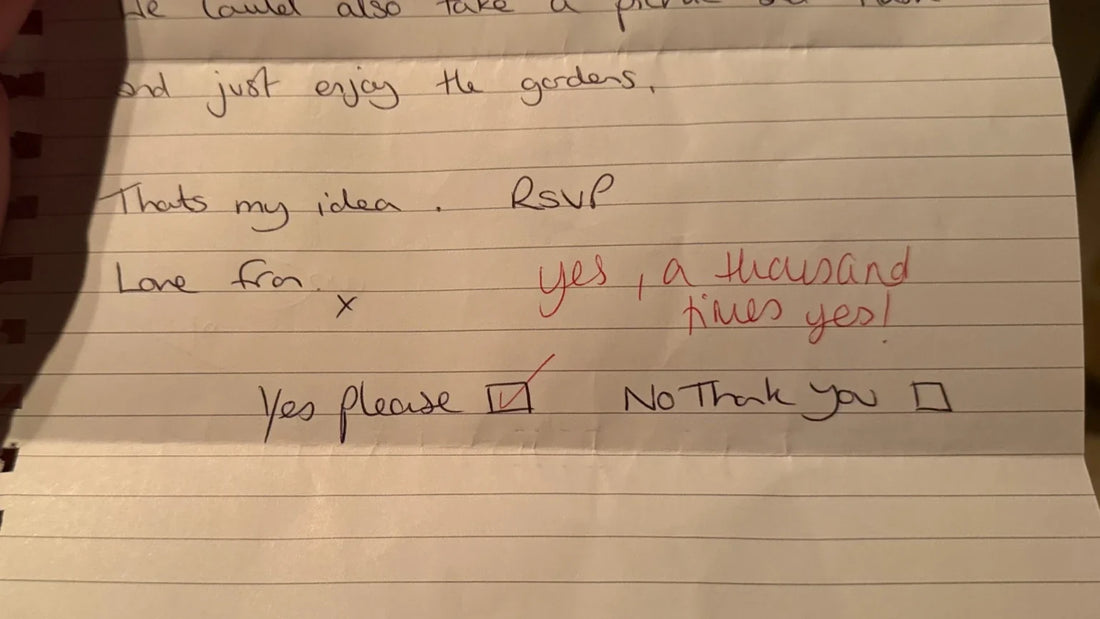 We could also take a
and just enjoy the gardens.
Thats my idea. RSVP
Love from x
yes, a thousand
times yes!
Yes please ☑ No Thank you ☐